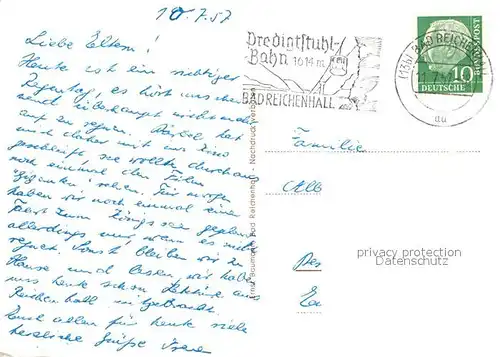 10.7.57
Liebe Eltern!
Heute ist ein richtiger
Regentag, es hört anscheinend
überhaupt nicht mehr
auf zu regnen. Bärbel hat
mich daher mit ins Kino
geschleift, sie wollte durchaus
noch einmal den Film
sehen. Für morgen
haben wir noch einmal eine
Fahrt zum Königssee geplant
allerdings nur, wenn es nicht
regnet. Sonst bleiben wir zu
Hause und lesen, wir haben
uns heute schon Lektüre aus
Reichenhall mitgebracht.
Euch allen für heute viele
herzliche Grüße
Predigtstuhl-
Bahn 1614 m
BAD REICHENHALL
(13b) BAD REICHENHALL
au
10
DEUTSCHE
BUNDESPOST
Bad Reichenhall - Nachdruck verboten
Familie
Alb
privacy protection
Datenschutz